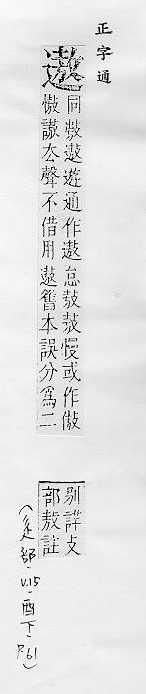 正字通
遨
同敖遨遊通作遨怠敖敖慢或作傲
慠謸厺聲不借用遨舊本誤分爲二
別詳攴
部敖註
(辵部、V.15、酉下、P.61)